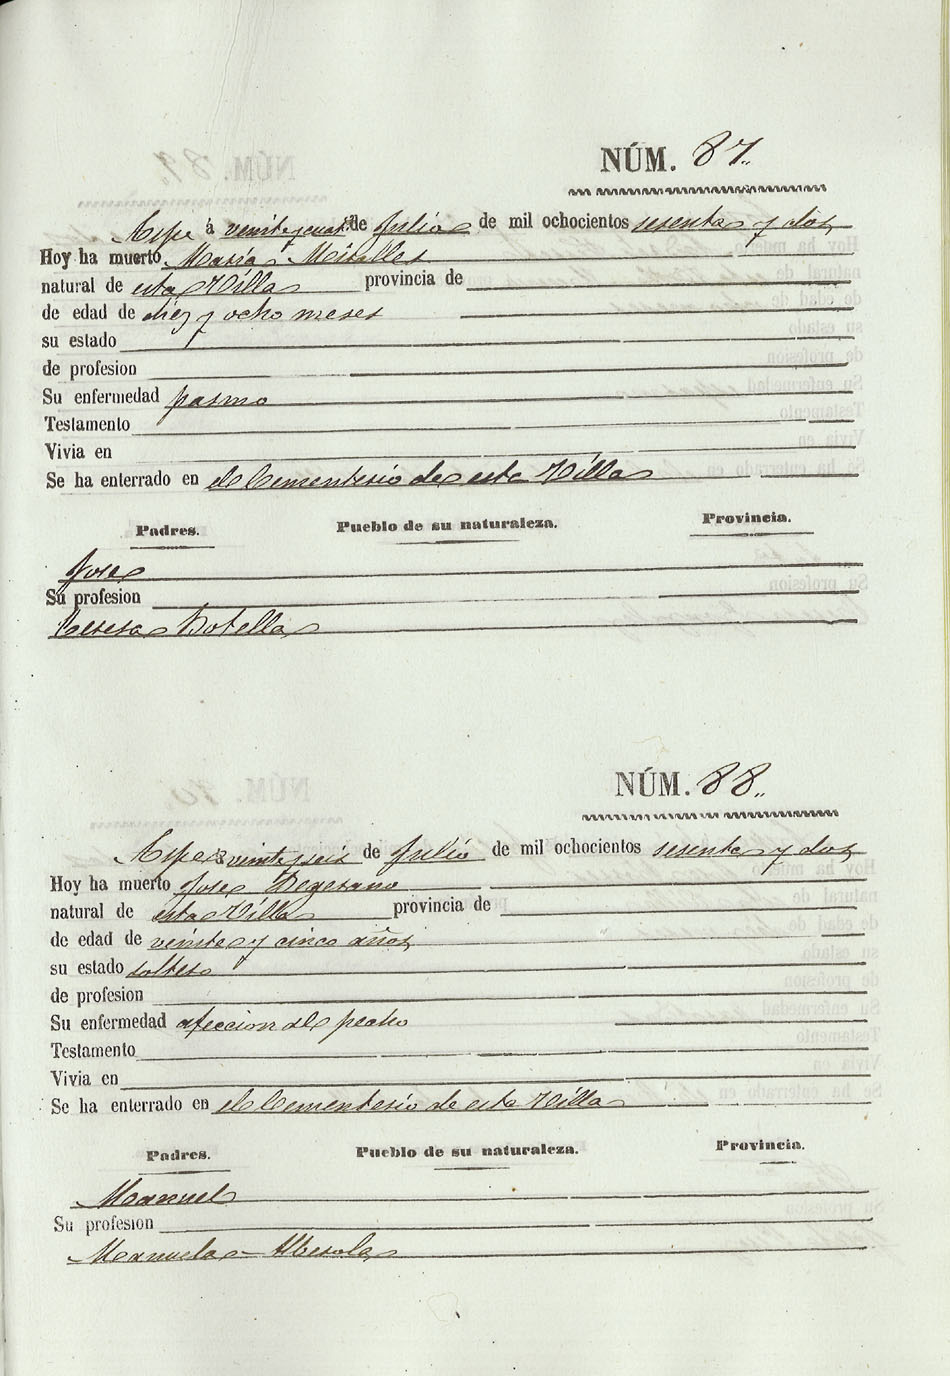 NÚM. 87.
Aspe á veinte y cuatro de Julio de mil ochocientos sesenta y dos
Hoy ha muerto Maria Miralles
natural de esta Villa provincia de
de edad de diez y ocho meses
su estado
de profesion
Su enfermedad pasmo
Testamento
Vivia en
Se ha enterrado en el Cementerio de esta Villa
Padres. Pueblo de su naturaleza. Provincia.
Jose
Su profesion
Teresa Botella
NÚM. 88.
Aspe á veinte y seis de Julio de mil ochocientos sesenta y dos
Hoy ha muerto Jose
natural de esta Villa provincia de
de edad de veinte y cinco años
su estado soltero
de profesion
Su enfermedad afeccion al pecho
Testamento
Vivia en
Se ha enterrado en el Cementerio de esta Villa
Padres. Pueblo de su naturaleza. Provincia.
Manuel
Su profesion
Manuela